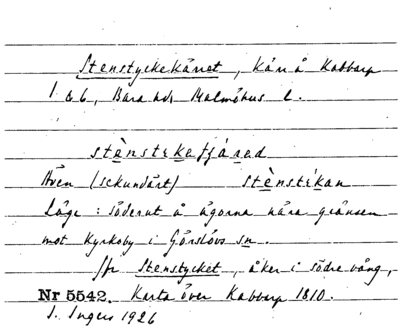 Stenstyckekärret, kärr å Kabbarp
1 & 6, Bara hd, Malmöhus l.
stènstekefjáred
Även (sekundärt) stènstékan
Läge: söderut å ägorna nära gränsen
mot Kyrkoby i Görslövs sn.
Jfr Stenstycket, åker i södre vång,
Nr 5542. Karta över Kabbarp 1810.
I. Ingers 1926